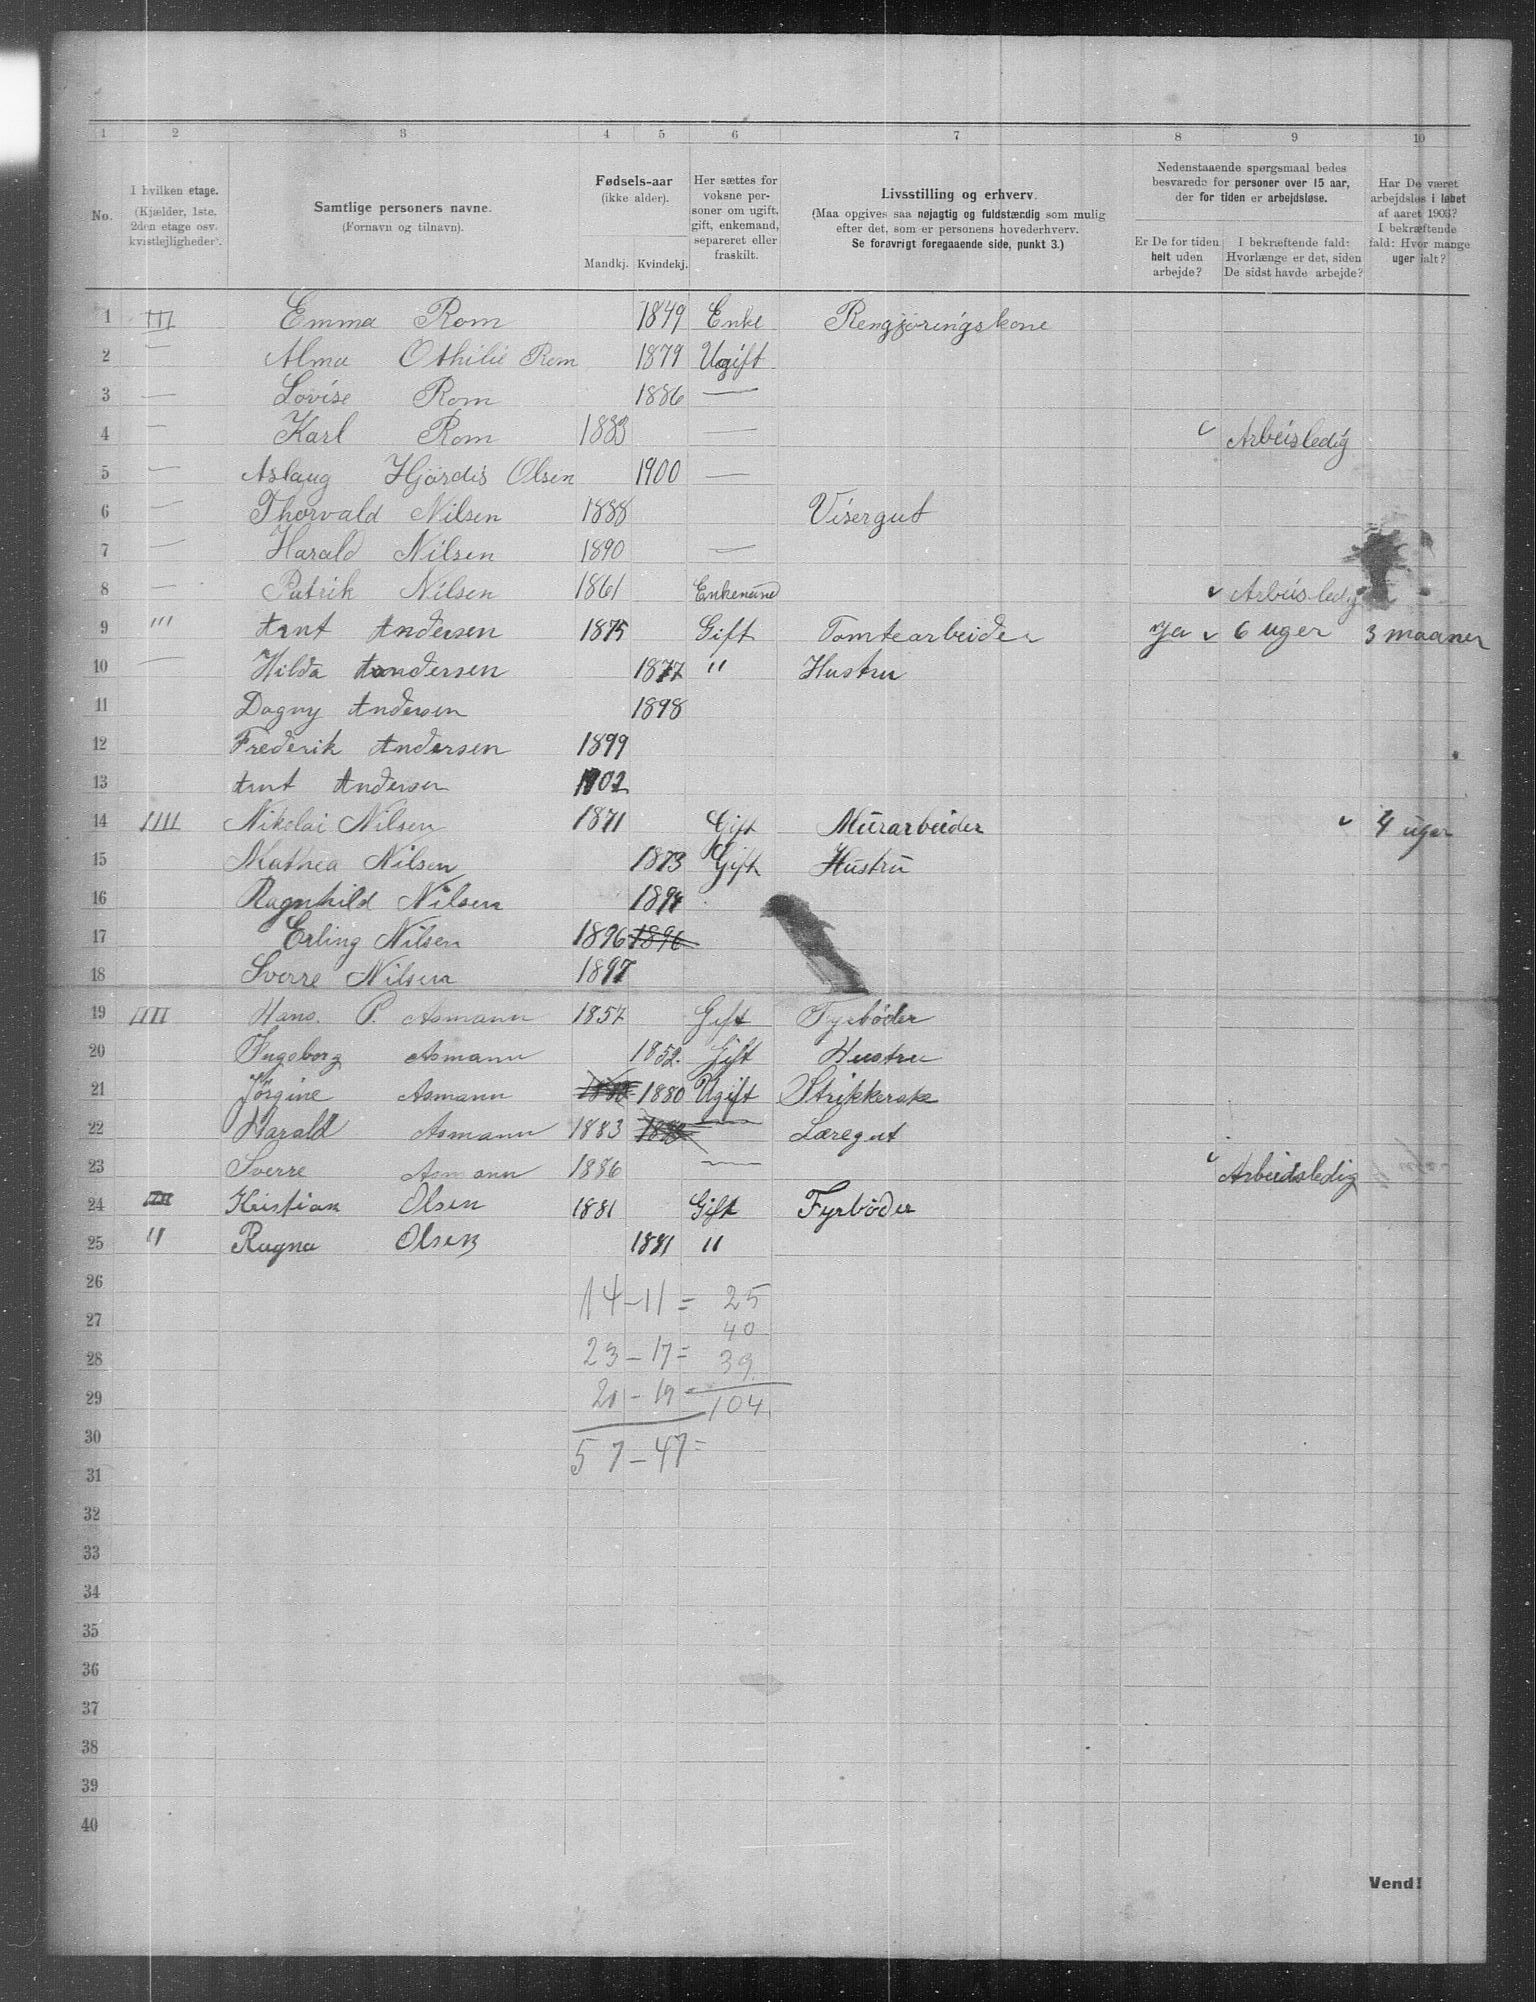 1 2 3 4 5 6 7 8 9 10
No.
I hvilken etage.
(Kjælder, 1ste, 2den etage osv. kvistlejligheder).
Samtlige personers navne.
(Fornavn og tilnavn).
Fødsels-aar
(ikke alder).
Mandkj. Kvindekj.
Her sættes for voksne personer om ugift, gift, enkemand, separeret eller fraskilt.
Livsstilling og erhverv.
(Maa opgives saa nøjagtig og fuldstændig som mulig
efter det, som er personens hovederhverv.
Se forøvrigt foregaaende side, punkt 3.)
Nedenstaaende spørgsmaal bedes
besvarede for personer over 15 aar,
der for tiden er arbejdsløse.
Er De for tiden helt uden arbejde?
I bekræftende fald: Hvorlænge er det, siden De sidst havde arbejde?
Har De været arbejdsløs i løbet af aaret 1903? I bekræftende fald: Hvor mange uger ialt?
1 III Emma Rom 1849 Enke Rengjøringskone
2 — Alma Othilie Rom 1879 Ugift
3 — Lovise Rom 1886 —
4 — Karl Rom 1883 — Arbeisledig
5 — Aslaug Hjördis Olsen 1900 —
6 — Thorvald Nilsen 1888 Visergut
7 — Harald Nilsen 1890 —
8 — Patrik Nilsen 1861 Enkemand Arbeisledig
9 ''' Arnt Andersen 1875 Gift Tomtearbeider Ja 6 uger 3 maaner
10 — Hilda Andersen 1877 " Hustru
11 Dagny Andersen 1898
12 Frederik Andersen 1899
13 Arnt Andersen 1902
14 IIII Nikolai Nilsen 1871 Gift Murarbeider 4 uger
15 Mathea Nilsen 1873 Gift Hustru
16 Ragnhild Nilsen 1894
17 Erling Nilsen 1896 1896
18 Sverre Nilsen 1897
19 IIII Hans. P. Asmann 1857 Gift Fyrbøder
20 Ingeborg Asmann 1852. Gift Hustru
21 Jörgine Asmann 1880 1880 Ugift Strikkerske
22 Harald Asmann 1883 1883 — Læregut
23 Sverre Asmann 1886 — Arbeidsledig
24 IIII Kristian Olsen 1881 Gift Fyrbøder
25 " Ragna Olsen 1881 "
26 14 - 11 = 25
27 40
28 23 - 17 = 39
29 20 - 19 104
30 57 - 47 =
31
32
33
34
35
36
37
38
39
40
Vend!